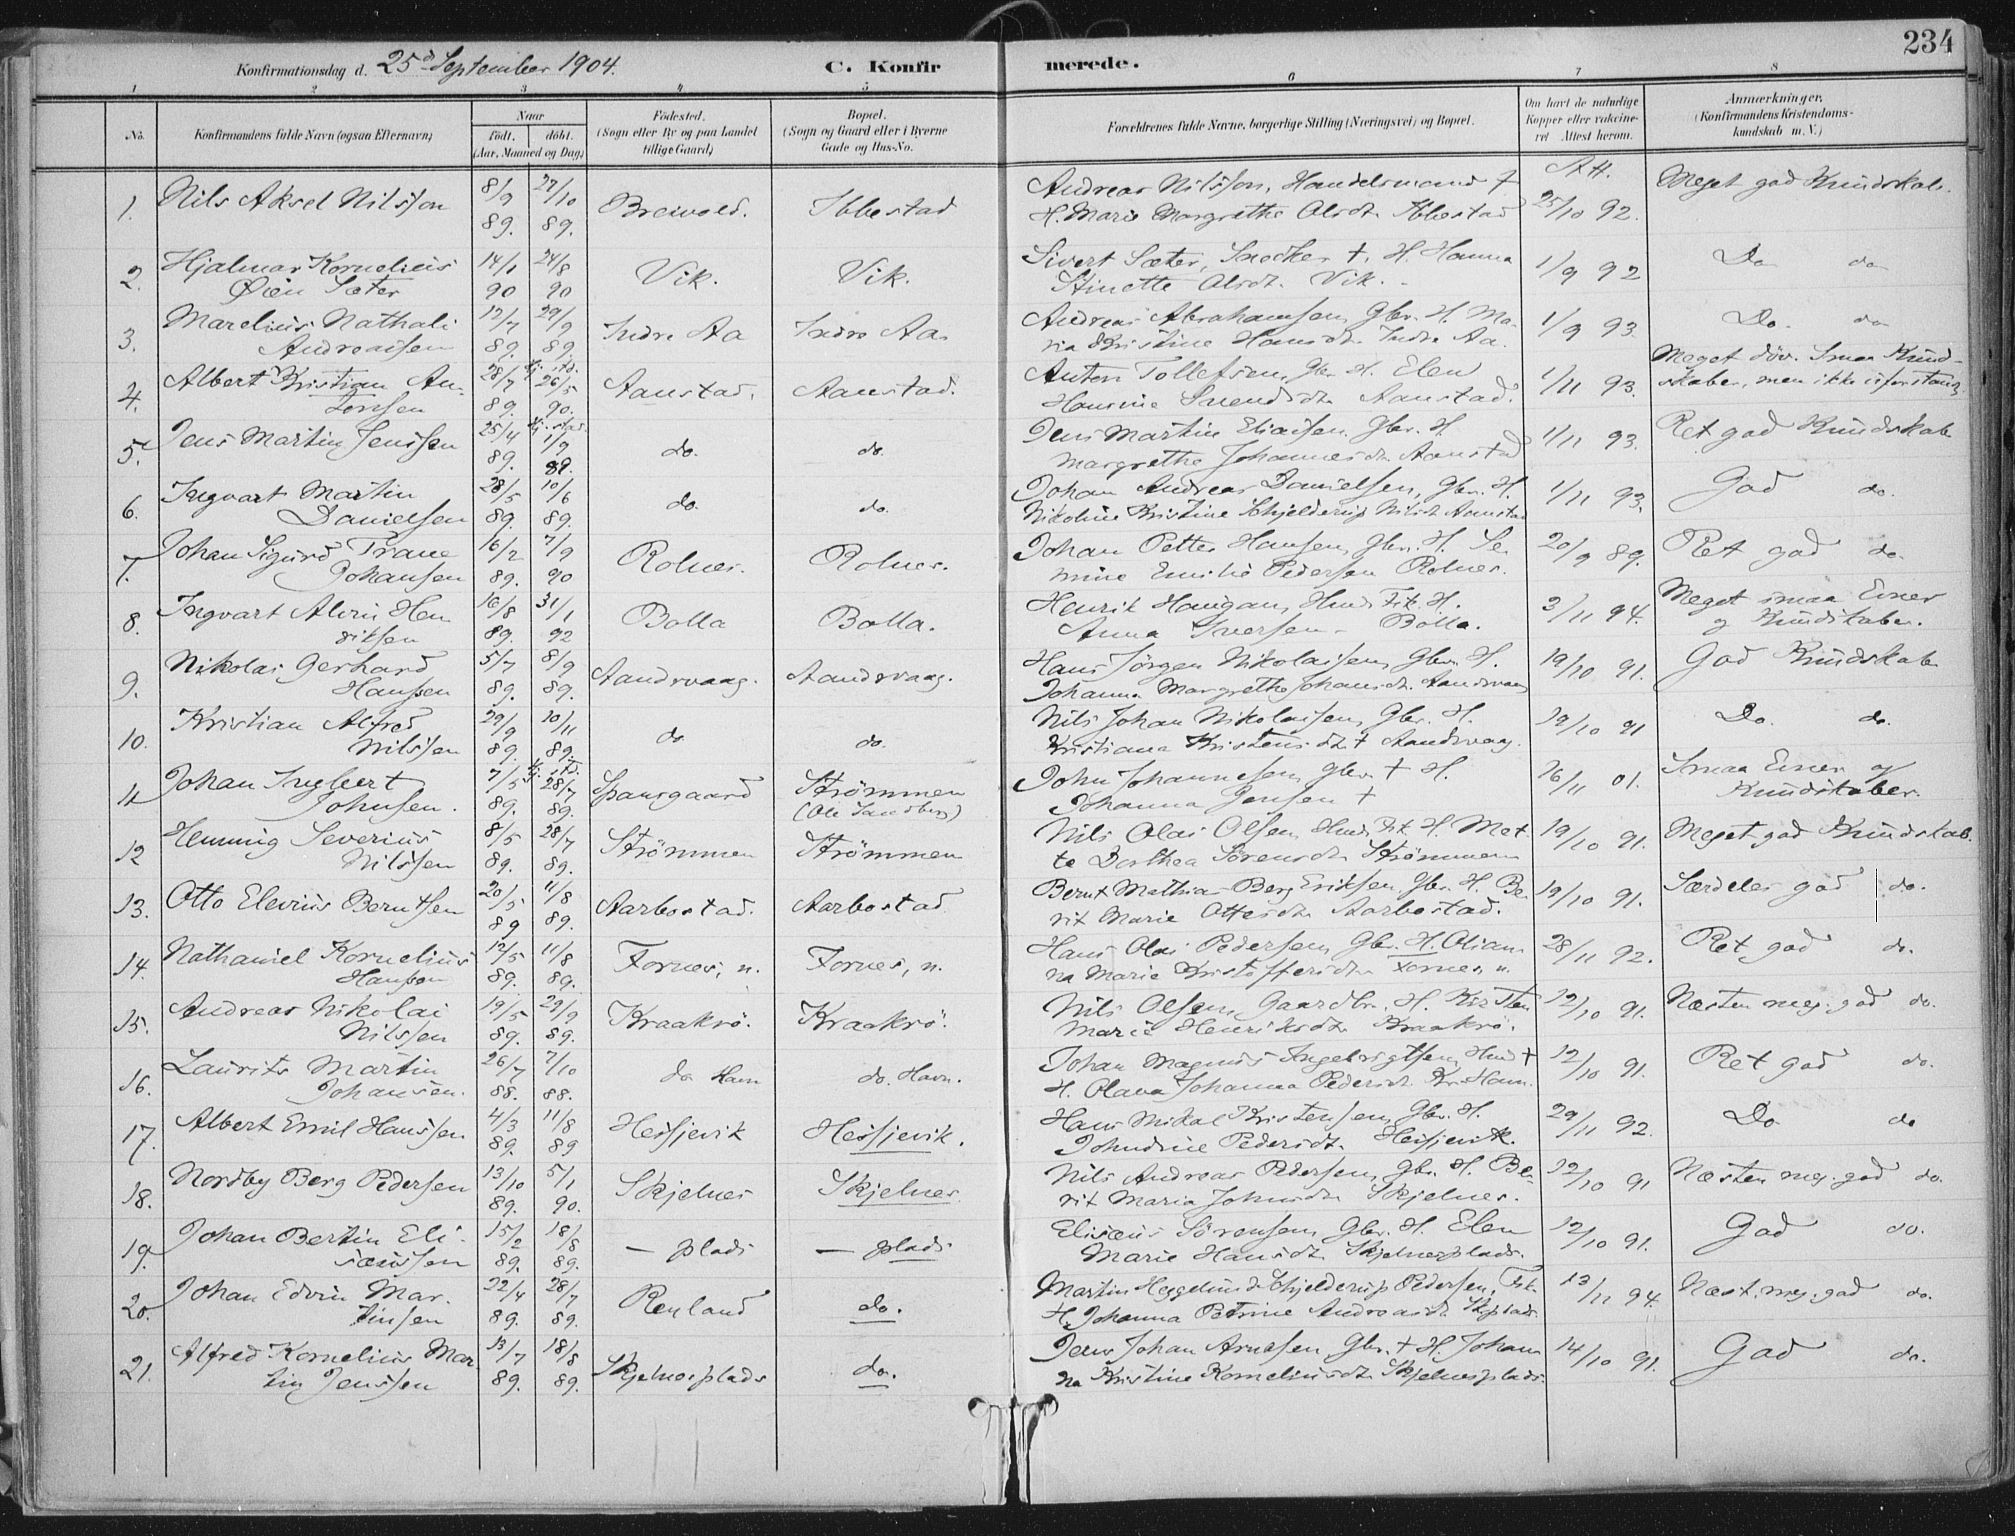 234
Konfirmationsdag d. 25de September 1904. C. Konfirmerede.
1 2 3 4 5 6 7 8
No. Konfirmandens fulde Navn (ogsaa Efternavn) Naar födt. döbt. (Aar, Maaned og Dag) Födested. (Sogn eller By og paa Landet tillige Gaard) Bopæl. (Sogn og Gaard eller i Byerne Gade og Hus-No. Forældrenes fulde Navne, borgerlige Stilling (Næringsvei) og Bopæl. Om havt de naturlige Kopper eller vaccineret Attest herom. Anmærkninger. (Konfirmandens Kristendomskundskab m. V.)
1. Nils Aksel Nilsson 8/9 89. 27/10 89. Breivold. Ibbestad Andreas Nilsson, Handelsmand †
H. Marie Margrethe Olsdt. Ibbestad Att. 25/10 92. Meget god Kundskab.
2. Hjalmar Kornelius 14/1 90 24/8 90 Vik. Vik. Sivert Sæter, Snedker †, H. Hanna
Øien Sæter Stinette Olsdt. Vik. 1/9 92 Do do
3. Marelius Nathali 12/7 89. 29/9 89. Indre Aa Indre Aa. Andreas Abrahamsen, Gbr. H. Ma-
Andreassen ria Kristine Hansdt. Indre Aa. 1/9 93. Do. do
4. Albert Kristian An- 28/7 89. 26/5 90. Aanstad. Aanstad. Anton Tollefsen, Gbr. H. Elen
tonsen Hansine Svendsdt. Aanstad. 1/11 93. Meget döv. Smaa Kund-
skaber, men ikke uforstand.
5. Jens Martin Jenssen 25/4 89. 1/9 89. do. do. Jens Martin Eliassen Gbr. H.
Margrethe Johannesdt. Aanstad 1/11 93. Ret god Kundskab
6. Ingvart Martin 28/5 89. 10/6 89. do do. Johan Andreas Danielsen, Gbr. H.
Danielsen Nikoline Kristine Schjelderup Nilsdt. Aanstad 1/11 93. God do.
7. Johan Sigurd Trane 16/2 89. 7/9 90 Rolnes. Rolnes. Johan Petter Hansen, Gbr. H. Se-
Johansen mine Emilie Pedersen Rolnes. 20/9 89. Ret god do.
8. Ingvart Alvin Hen 16/8 89. 31/1 92 Bolla Bolla. Henrik Haugan, Husm. Fisk. H.
riksen Anna Iversen - Bolla. 3/11 94. Meget smaa Evner
og Kundskaber.
9. Nikolai Gerhard 5/7 89. 8/9 89. Aandsvaag. Aandsvaag. Hans Jörgen Nikolaisen, Gbr. H.
Hanssen Johanna Margrethe Johansdt. Aandsvaag 19/10 91. God Kundskab
10. Kristian Alfred 29/9 89. 10/11 89. do do. Nils Johan Nikolaisen, Gbr. H.
Nilssen Kristiana Kristensdt. † Aandsvaag. 19/10 91 Do. do.
11 Johan Ingbert 7/5 89. 28/7 89. Spansgaard Strömmen John Johannesen, Gbr. † H.
Johnsen. (Ole Sandberg) Johanna Jensen † 26/11 01. Smaa Evner og
Kundskaber.
12 Hemming Severius 8/5 89. 28/7 89. Strömmen Strömmen Nils Olai Olsen, Husm. Fisk. H. Met-
Nilssen te Dorthea Sörensdt. Strömmen 19/10 91. Meget god Kundskab.
13. Otto Elevius Berntsen 20/5 89 11/8 89. Aarbostad. Aarbostad Bernt Mathias Berg Eriksen, Gbr. H. Be-
rit Marie Ottesdt. Aarbostad. 19/10 91. Særdeles god do.
14. Nathaniel Kornelius 12/5 89. 11/8 89. Fornes, n. Fornes, n. Hans Olai Pedersen, Gbr. H. Olian-
Hanssen na Marie Kristoffersdt. Fornes, n. 28/11 92. Ret god do.
15. Andreas Nikolai 19/5 89. 29/9 89. Kraakrö. Kraakrö. Nils Olsen, Gaardbr. H. Kirsten
Nilssen Marie Henriksdt. Kraakrö. 12/10 91. Næsten meg. god do.
16. Laurits Martin 26/7 88. 7/10 88. do Havn do. Havn. Johan Magnus Ingebrigtsen, Husm. †
Johansen. H. Olava Johanna Pedersdt. Kr. Havn. 12/10 91. Ret god do.
17. Albert Emil Hanssen 4/3 89. 11/8 89 Hessjevik Hessjevik. Hans Mikal Kristensen, Gbr. H.
Johndine Pedersdt. Hessjevik. 29/11 92. Do do
18. Nordby Berg Pedersen 13/10 89. 5/1 90. Skjelnes Skjelnes. Nils Andreas Pedersen, Gbr. H. Be-
rit Maria Johnsdt. Skjelnes. 12/10 91 Næsten meg. god do.
19. Johan Bertin Eli- 15/2 89. 18/8 89. — plads — plads Elisæus Sörensen, Gbr. H. Elen
sæussen Marie Hansdt. Skjelnesplads. 12/10 91. God do.
20. Johan Edvin Mar- 22/4 89. 28/7 89. Renland do. Martin Heggelund Schjelderup Pedersen, Fisk.
tinsen H. Johanna Petrine Andreasdt. Skj.plads. 13/11 94. Næst. meg. god do.
21. Alfred Kornelius Mar- 13/7 89. 18/8 89. Skjelnesplads do. Jens Johan Arnesen, Gbr. † H. Johan-
tin Jenssen na Kristine Korneliusdt. Skjelnesplads. 14/10 91. God do.